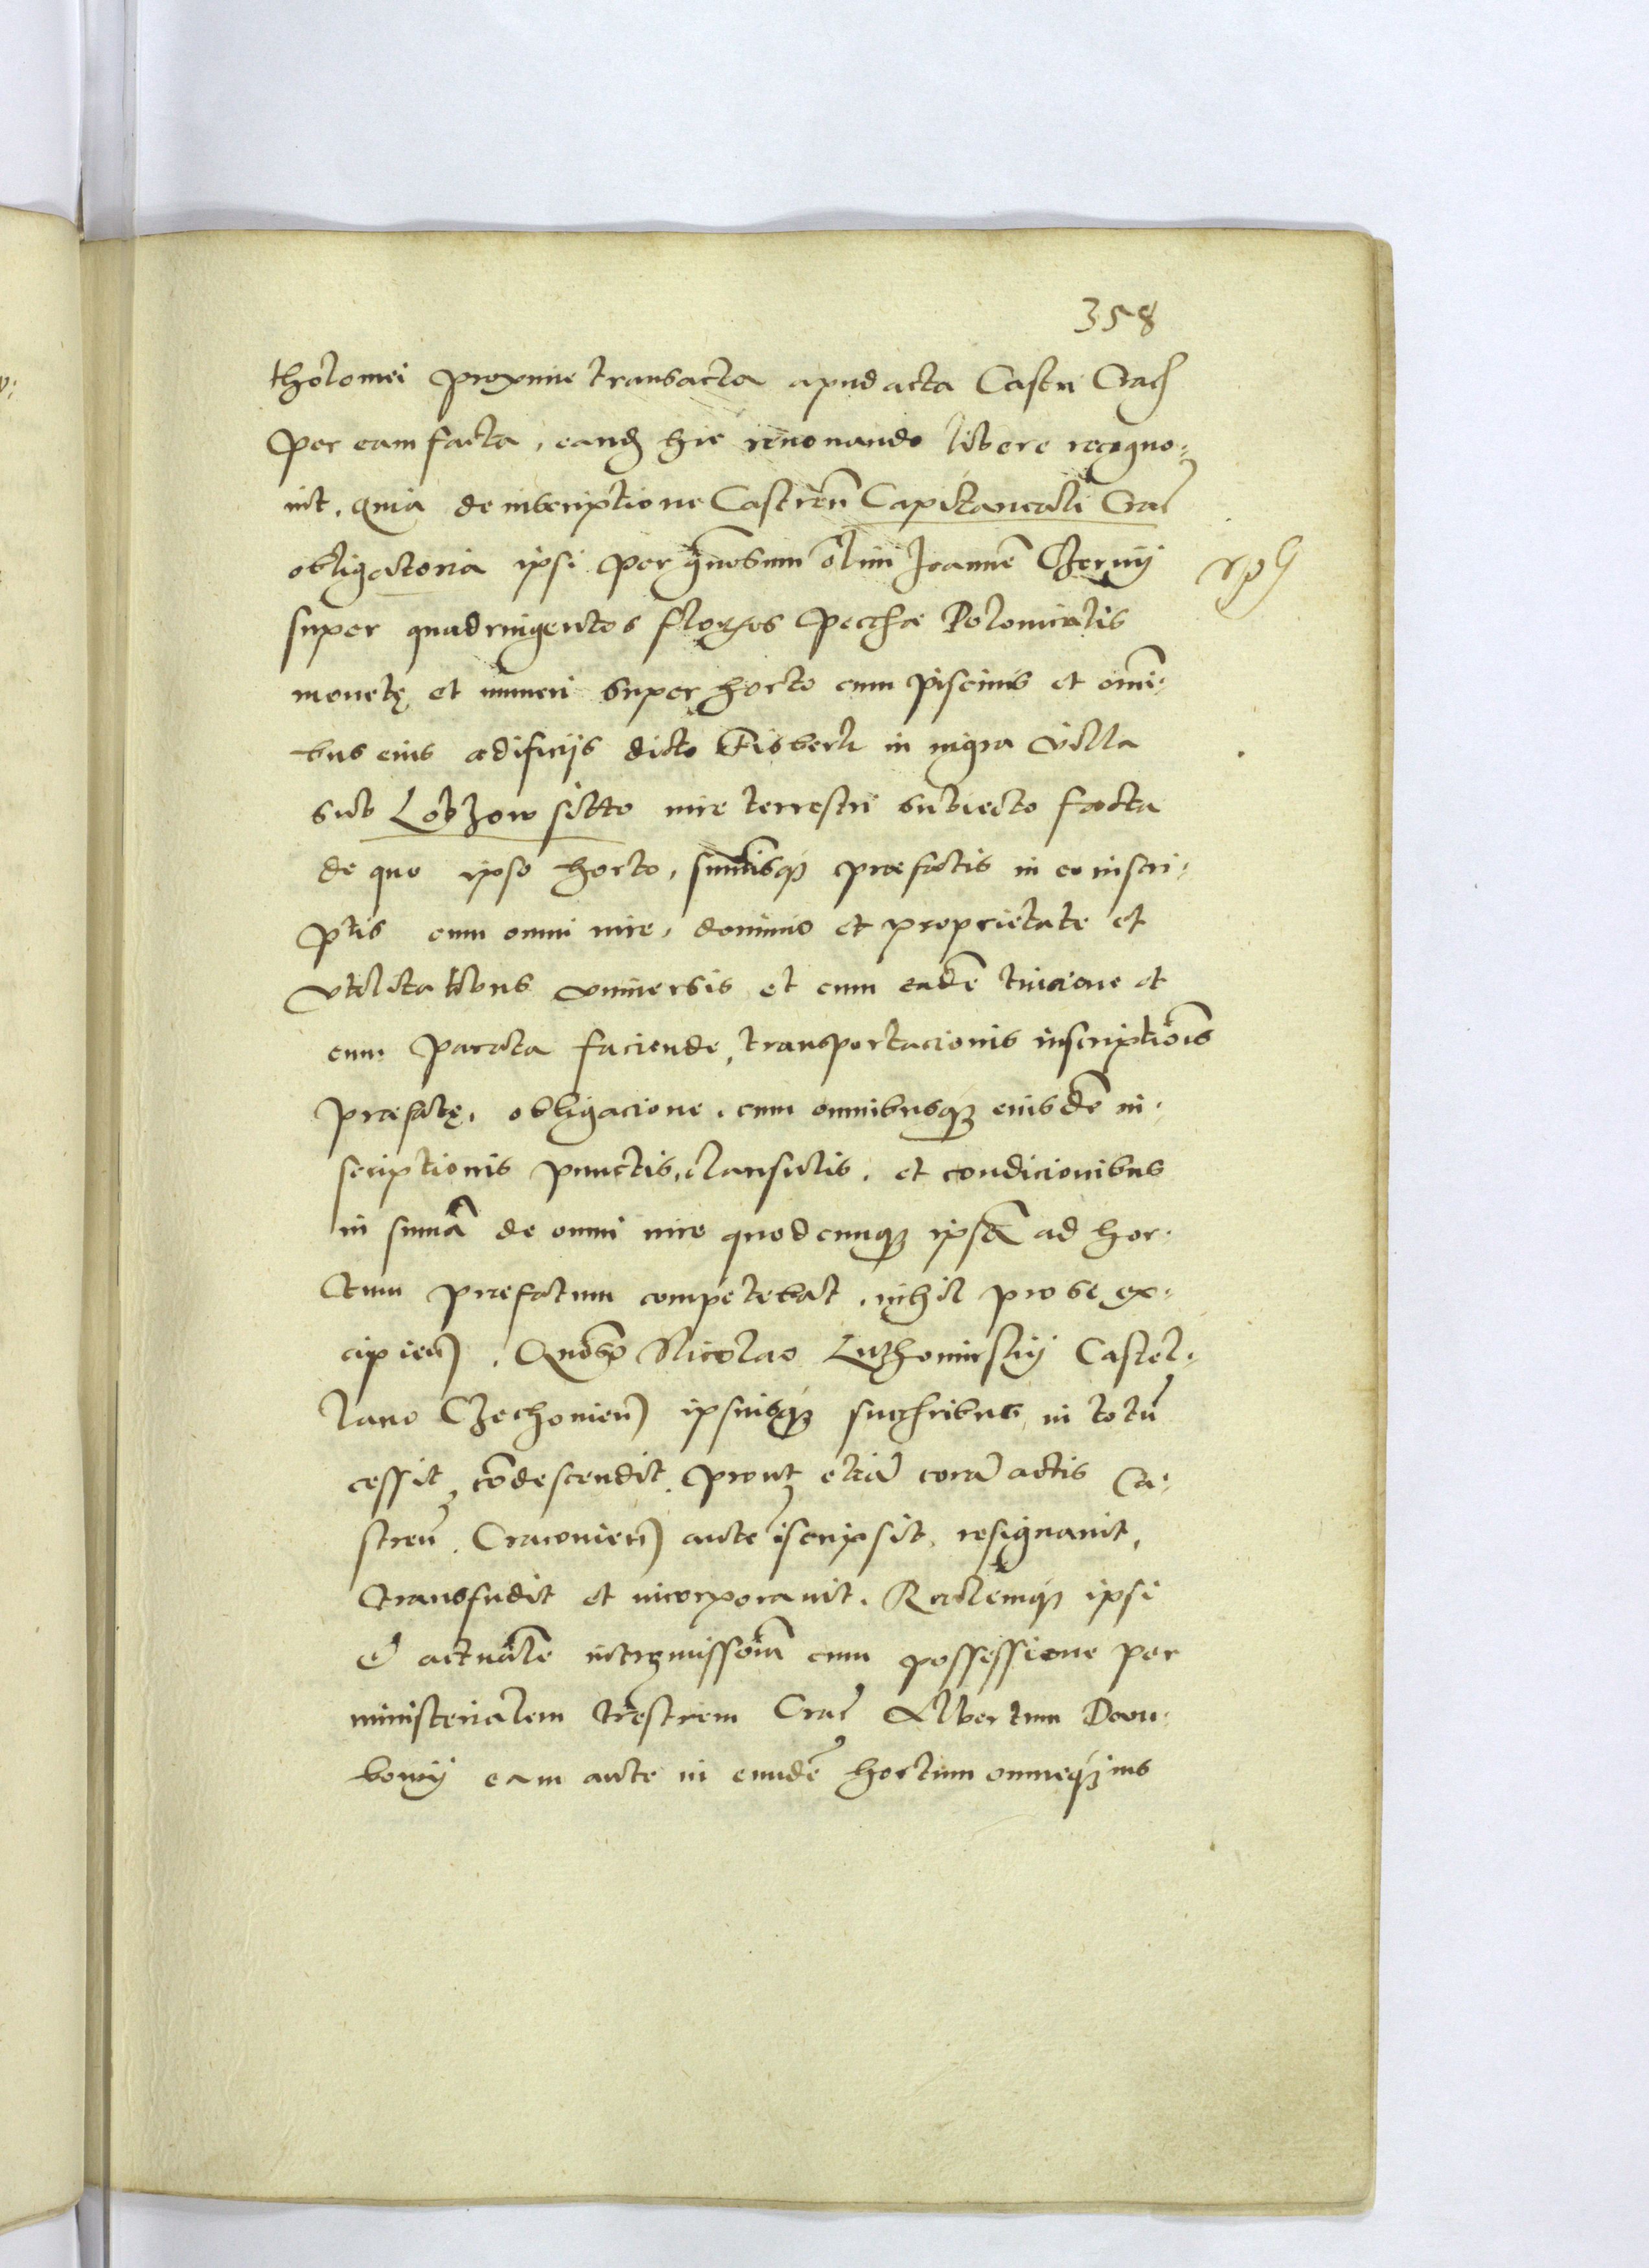 358
tholomei proxime transacta apud acta Castri Crac
per eam facta, eand hic renovando libere recogno¬
vit. Quia de inscriptione Castren Capitaneali Crac
obligatoria ipsi per gnosum olim Joannē Czerny
super quadringentos florenos pecchae Polonicalis
monetę et numeri super horto cum piscinis et omni¬
bus eius ædificijs dicto Fisberk in nigra Villa
sub Lobzow sitto iure terrestri subiecto facta
de quo ipso horto, summisq præfatis in eo inscri¬
ptis cum omni iure, dominio et proprietate et
utilitatibus universis et cum eadē tuicione et
cum parata faciende, transportacionis inscriptiois
præfatę, obligacione, cum omnibusq eiusdē in¬
scriptionis punctis, clausulis, et condicionibus
in summā de omni iure quodcunq ipsā ad hor¬
tum præfatum competebat, nihil pro se ex¬
cipien, Gnoso Nicolao Luthomirsky Castel¬
lano Czechonien ipsiusq succribus in totū
cessit, cōdescendit, prout etiā corā actis Ca¬
stren Cracovien ante iscripsit, resignavit,
transfudit et incorporavit. Realemq ipsi
et actualē intromissioem cum possessione per
ministerialem trestrem Crac Albertum
eam ante in eundē hortum omneq ius